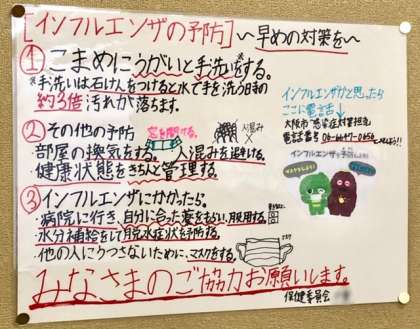 [インフルエンザの予防]〜早めの対策を〜
①こまめにうがいと手洗いをする。
*手洗いは石けんをつけると水で手を洗う時の
約3倍汚れが落ちます。
②その他の予防
窓を開ける。
人混み
・部屋の換気をする。・人混みを避ける。
・健康状態をきちんと管理する。
③インフルエンザにかかったら。
・病院に行き、自分に合った薬をもらい、服用する。
・水分補給をして脱水症状を予防する。
・他の人にうつさないために、マスクをする。
インフルエンザかと思ったら
ここに電話↓
大阪市"感染症対策担当
電話番号 06-6647-0656
インフルエンザを予防しよう!
みなさまのご協力お願いします。
保健委員会